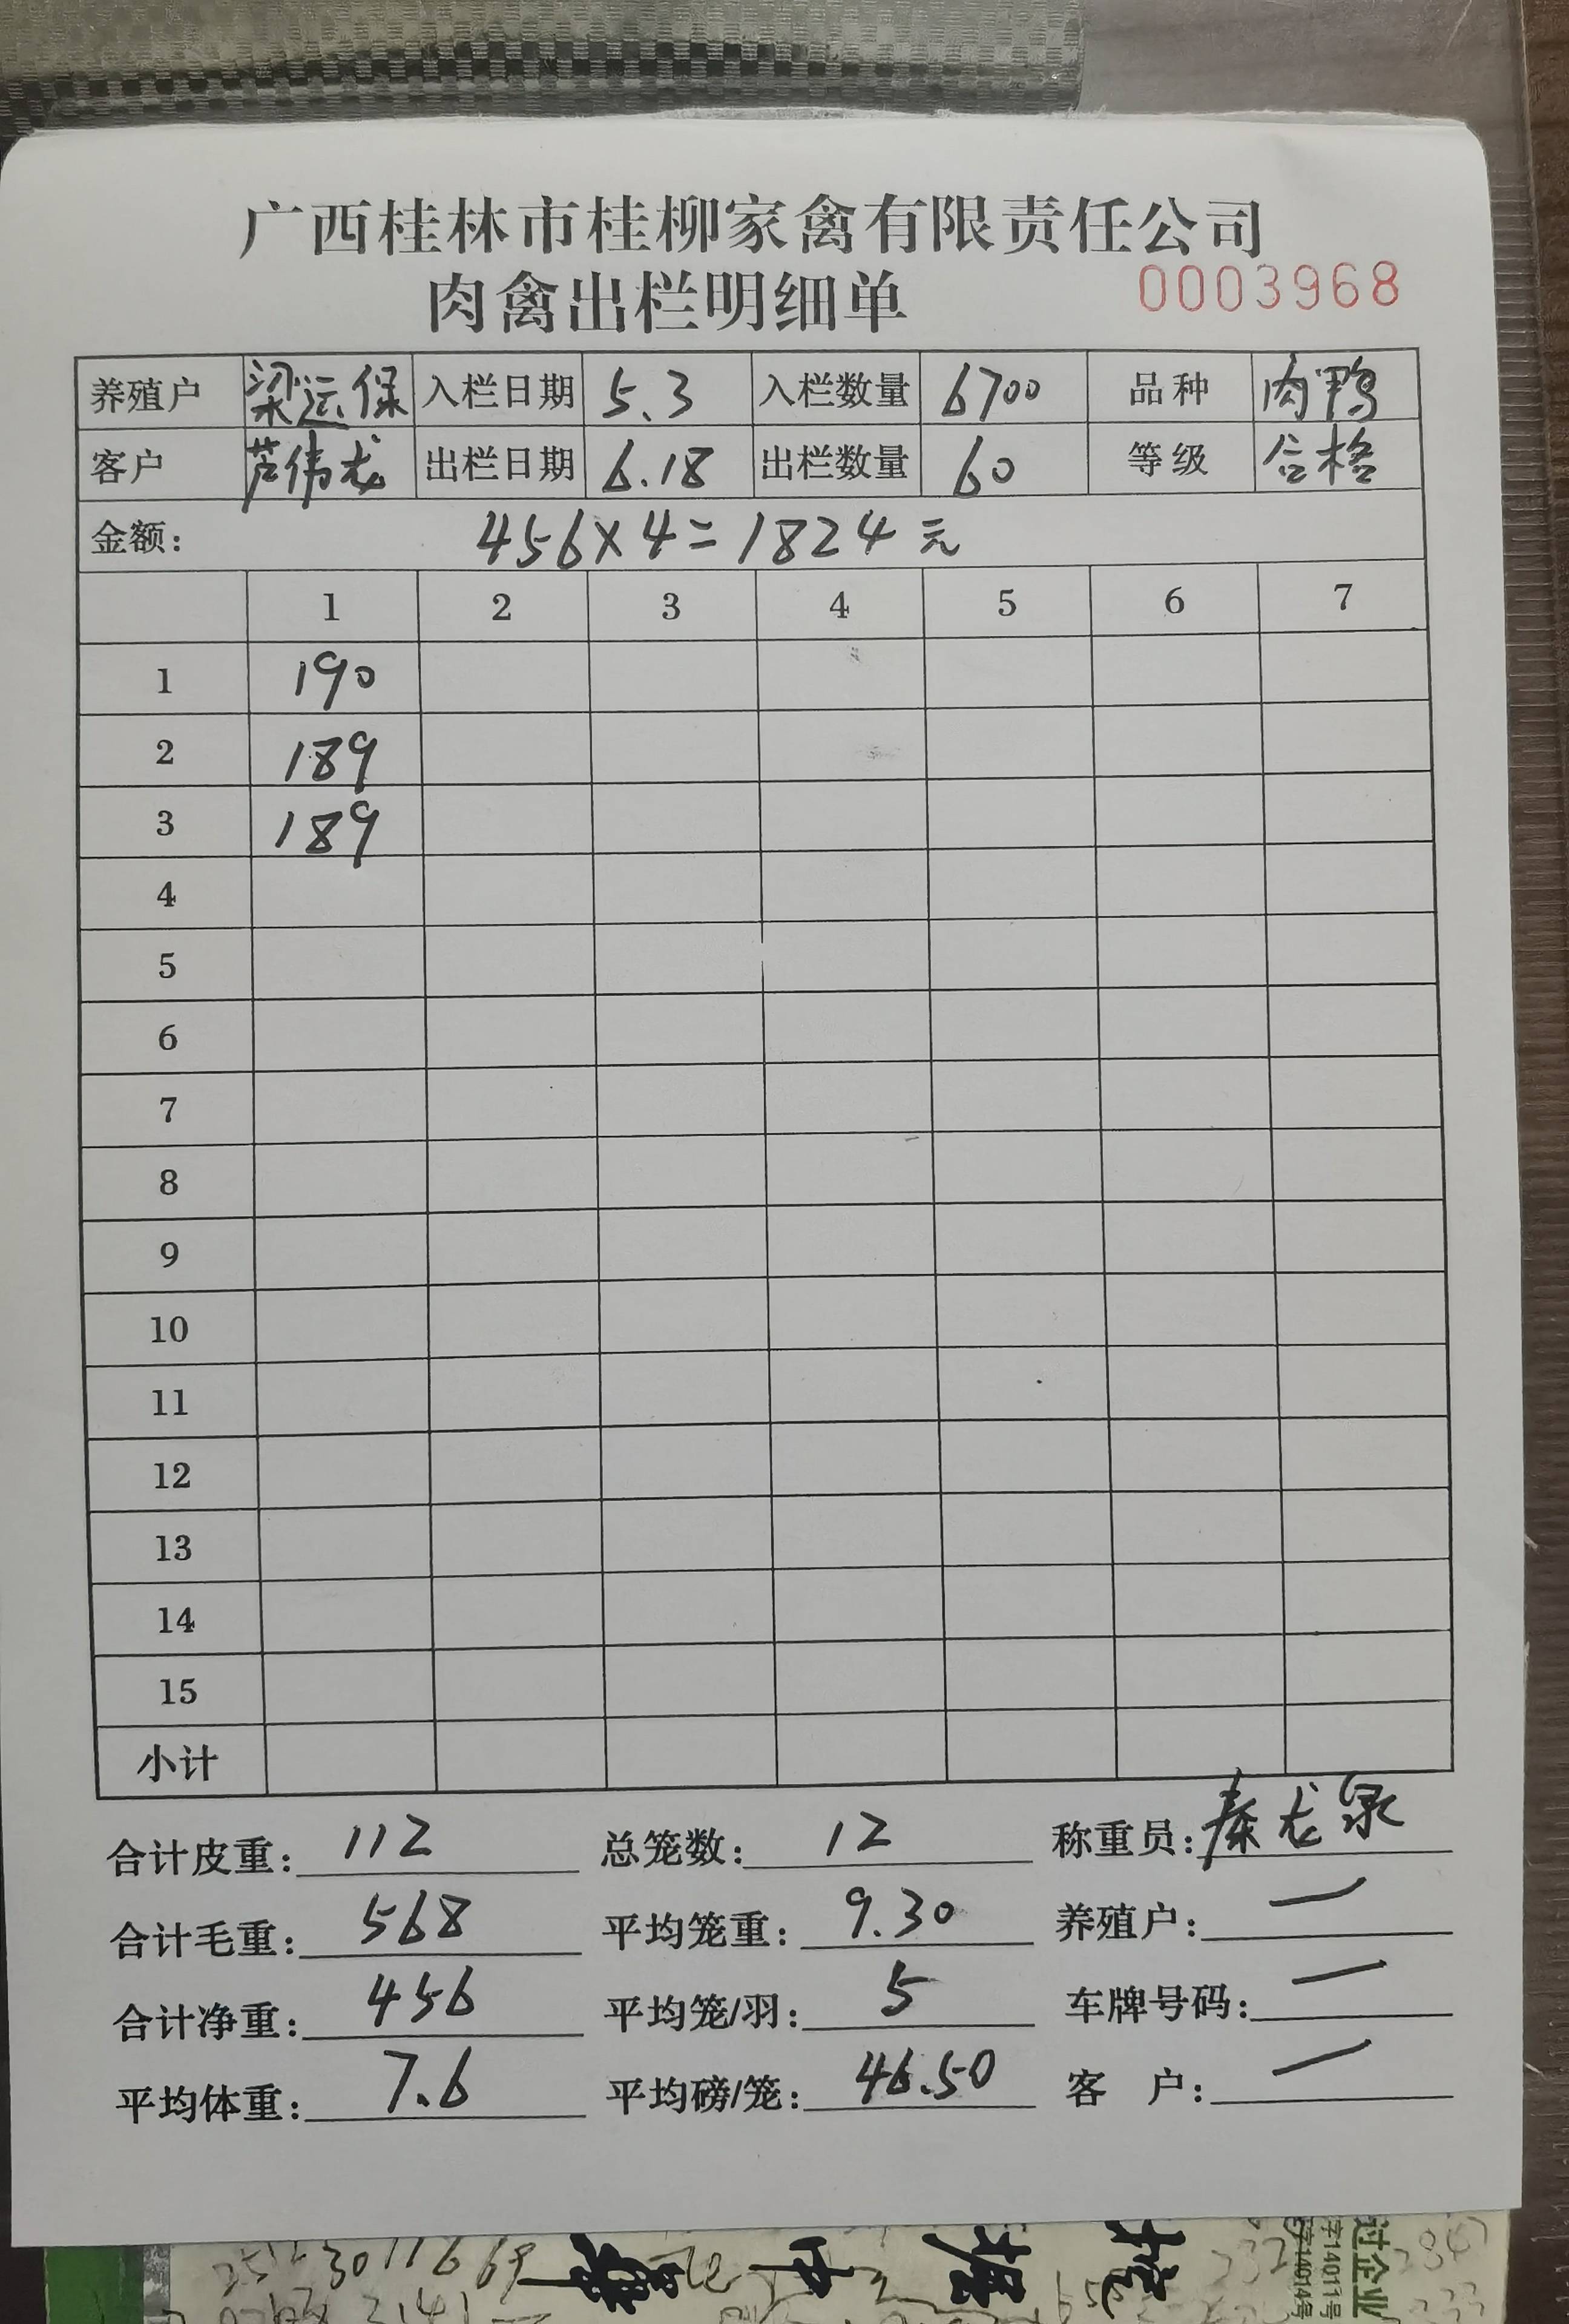 广西桂林市桂柳家禽有限责任公司
肉禽出栏明细单 0003968
养殖户 梁运保 入栏日期 5.3 入栏数量 6700 品种 肉鸭
客户 芦伟龙 出栏日期 6.18 出栏数量 60 等级 合格
金额: 456×4=1824元
1 2 3 4 5 6 7
1 190
2 189
3 189
4
5
6
7
8
9
10
11
12
13
14
15
小计
合计皮重: 112 总笼数: 12 称重员: 秦龙泉
合计毛重: 568 平均笼重: 9.30 养殖户: 一
合计净重: 456 平均笼/羽: 5 车牌号码: 一
平均体重: 7.6 平均磅/笼: 46.50 客 户: 一
过企业
字14011号
字14014号